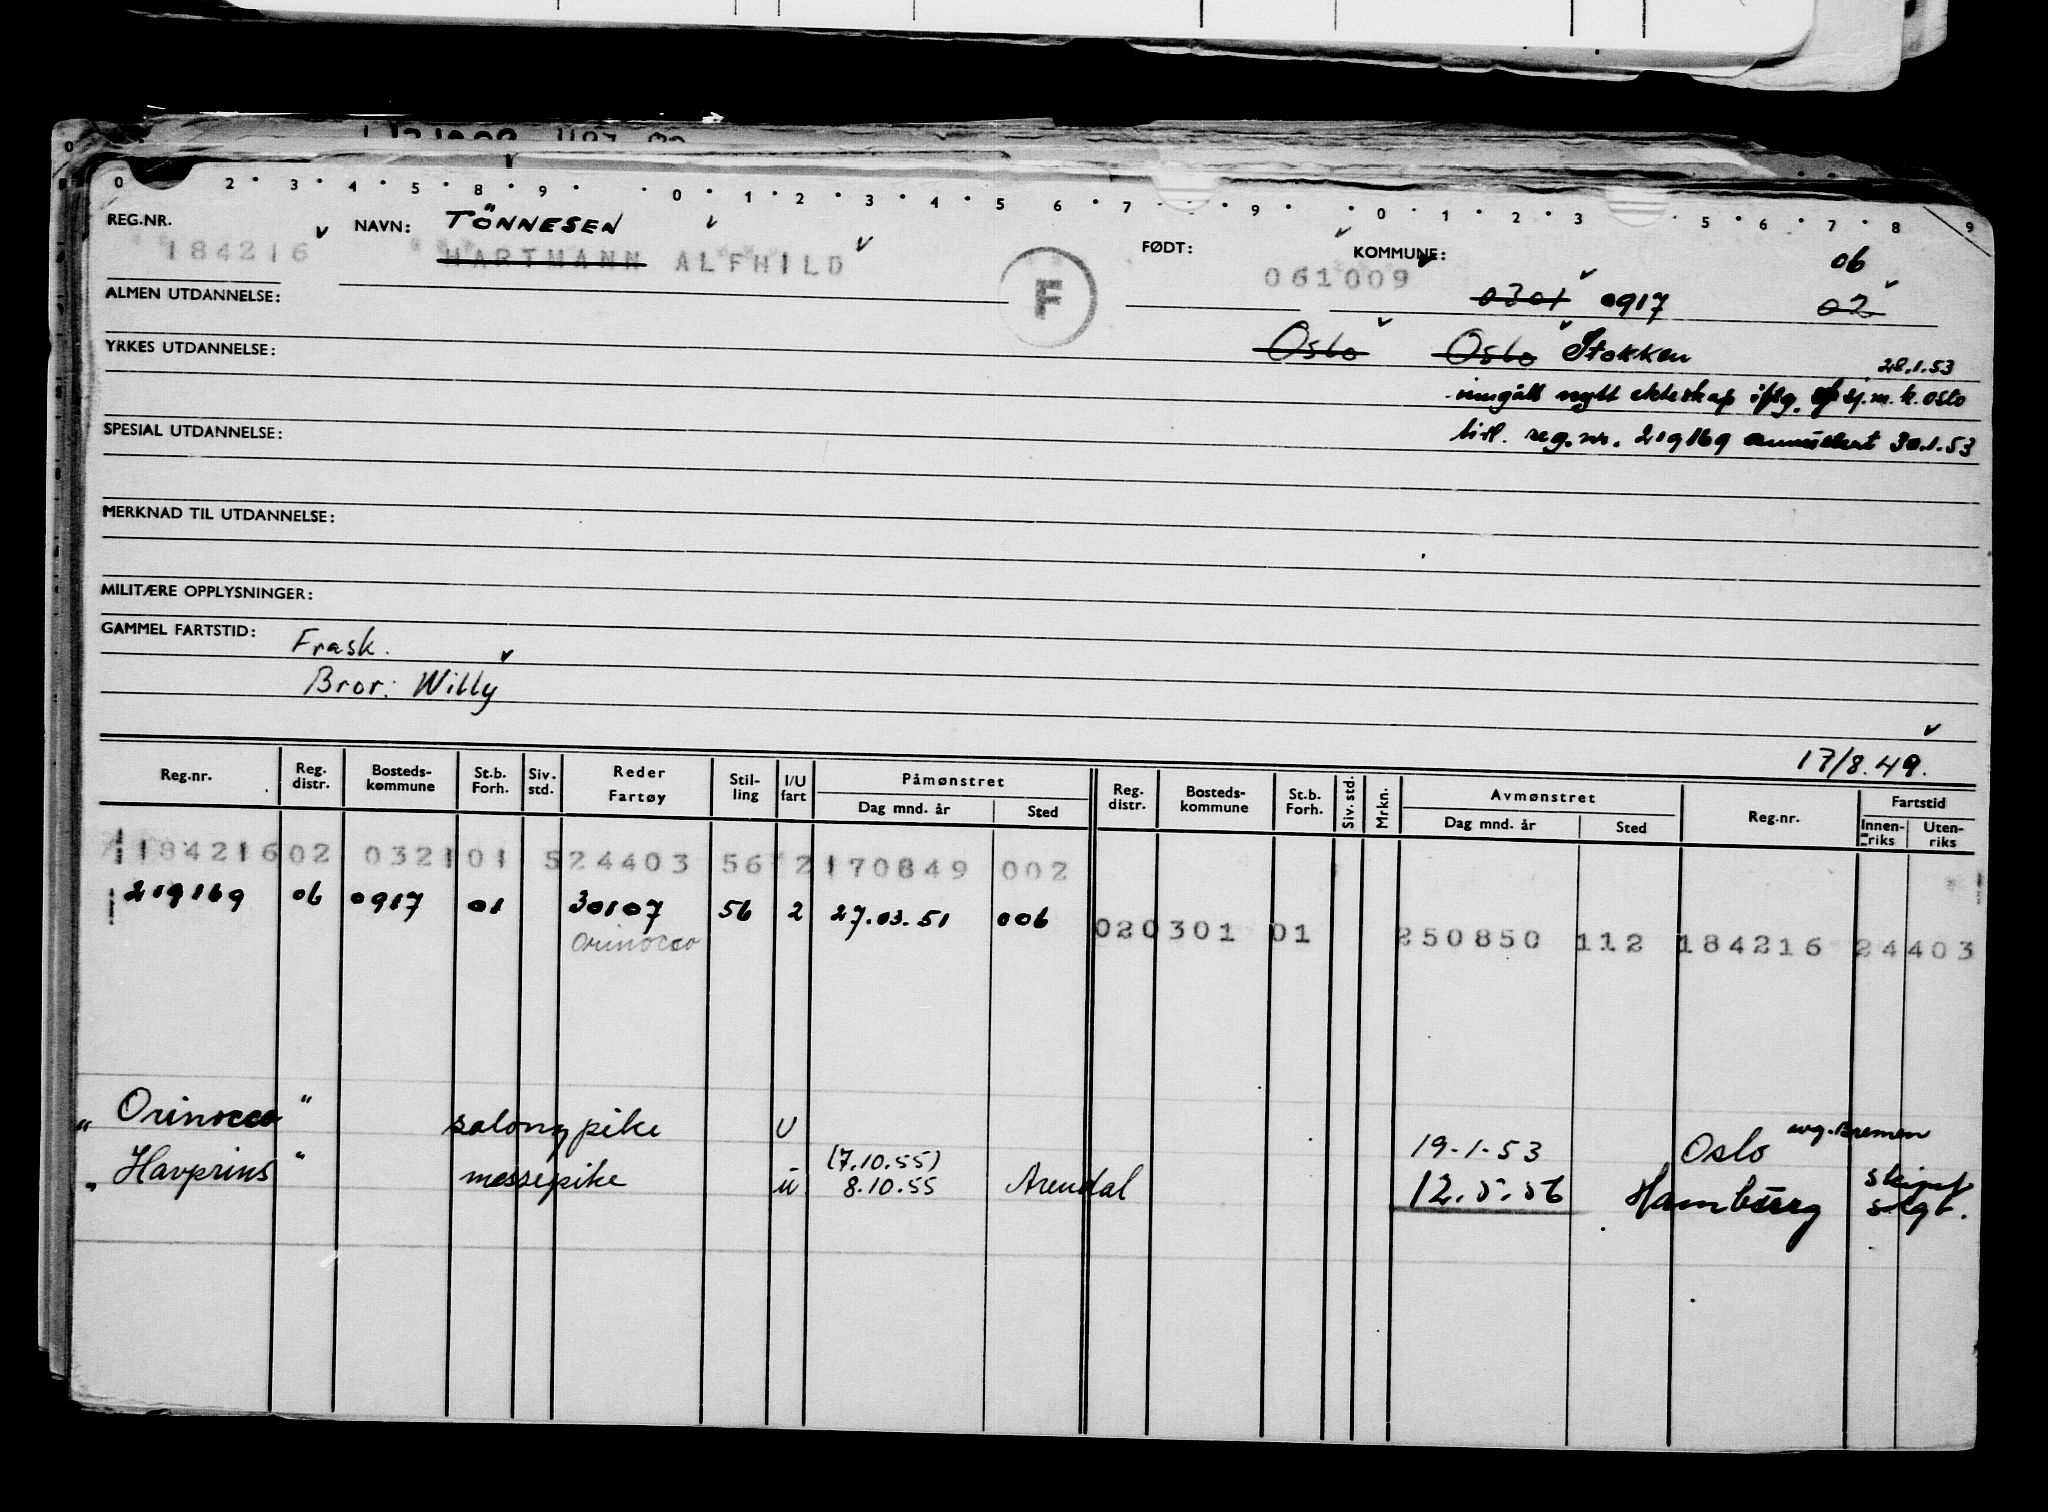 0 2 3 4 5 8 9 0 1 2 3 4 5 6 7 9 0 1 2 3 5 6 7 8 9
REG.NR. NAVN: TÖNNESEN
184216 HARTMANN ALFHILD F FØDT: 061009 KOMMUNE: 06
ALMEN UTDANNELSE: 0301 0917 02
YRKES UTDANNELSE: Oslo Oslo Stokken 28.1.53
inngått nytt ekteskap iflg. sj.m.k. Oslo
SPESIAL UTDANNELSE: tidl. reg.nr. 219169 annullert 30.1.53
MERKNAD TIL UTDANNELSE:
MILITÆRE OPPLYSNINGER:
GAMMEL FARTSTID: Frask.
Bror: Willy
17/8.49.
Reg.nr. Reg. distr. Bosteds-kommune St.b. Forh. Siv. std. Reder Fartøy Stil-ling I/U fart Påmønstret Dag mnd. år Sted Reg. distr. Bosteds-kommune St.b. Forh. Siv. std. Mrkn. Avmønstret Dag mnd. år Sted Reg.nr. Fartstid Innen-riks Uten-riks
184216 02 0321 01 524403 56 2 170849 002
219169 06 0917 01 30107 56 2 27.03.51 006
020301 01 250850 112 184216 24403
Orinocco
" Orinocco " salongpike U 19.1.53 Oslo avg. Bremen
(7.10.55)
" Havprins " messepike u 8.10.55 Arendal 12.5.56 Hamburg skipet
solgt.